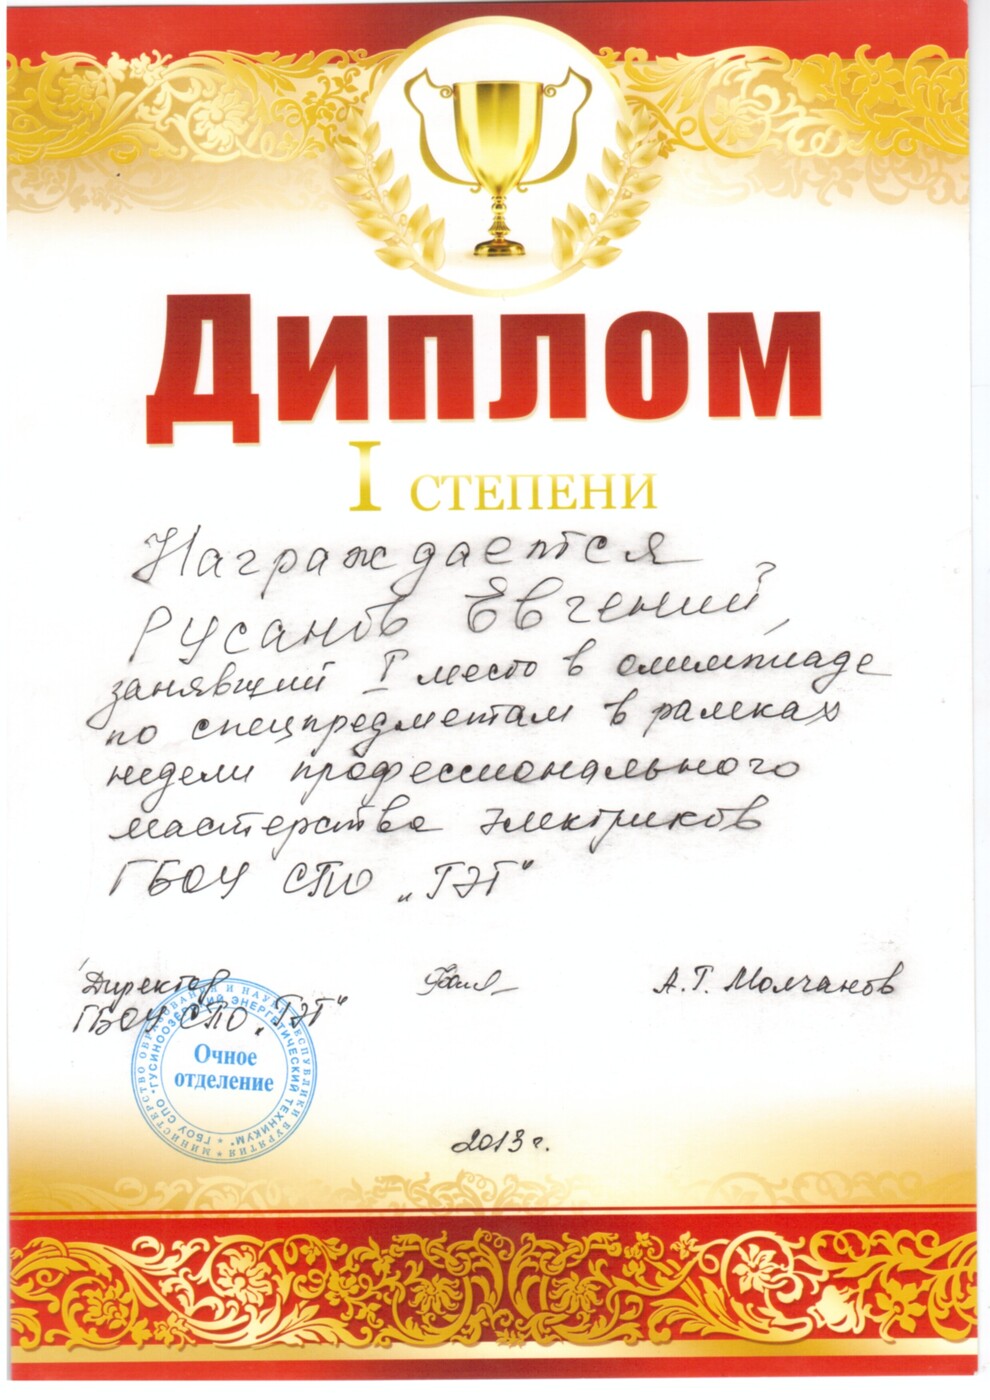 Диплом
I СТЕПЕНИ
Награждается
Русанов Евгений,
занявший I место в олимпиаде
по спецпредметам в рамках
недели профессионального
мастерства электриков
ГБОУ СПО „ГЭТ"
Директор
ГБОУ СПО „ГЭТ"
А.Г. Молчанов
МИНИСТЕРСТВО ОБРАЗОВАНИЯ И НАУКИ РЕСПУБЛИКИ БУРЯТИЯ *
ГБОУ СПО "ГУСИНООЗЕРСКИЙ ЭНЕРГЕТИЧЕСКИЙ ТЕХНИКУМ" *
Очное
отделение
2013 г.